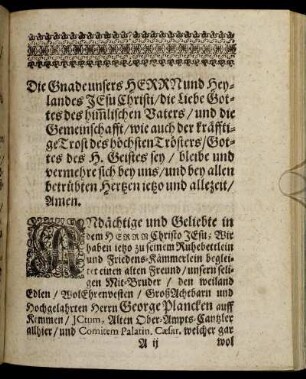 Die Gnade unsers HERRN und Hey-
landes JEsu Christi / die Liebe Got-
tes des himlischen Vaters / und die
Gemeinschafft / wie auch der kräffti-
ge Trost des höchsten Trösters / Got-
tes des H. Geistes sey / bleibe und
vermehre sich bey uns / und bey allen
betrübten Hertzen ietzo und allezeit /
Amen.
ANdächtige und Geliebte in
dem HERRN Christo JEsu: Wir
haben ietzo zu seinem Ruhebettlein
und Friedens-Kämmerlein beglei-
tet einen alten Freund / unsern seli-
gen Mit-Bruder / den weiland
Edlen / WolEhrenvesten / GroßAchtbarn und
Hochgelahrten Herrn George Plancken auff
Kemmen / JCtum, Alten Ober-Ampts-Cantzler
allhier / und Comitem Palatin. Cæsar. welcher gar
A ij
wol